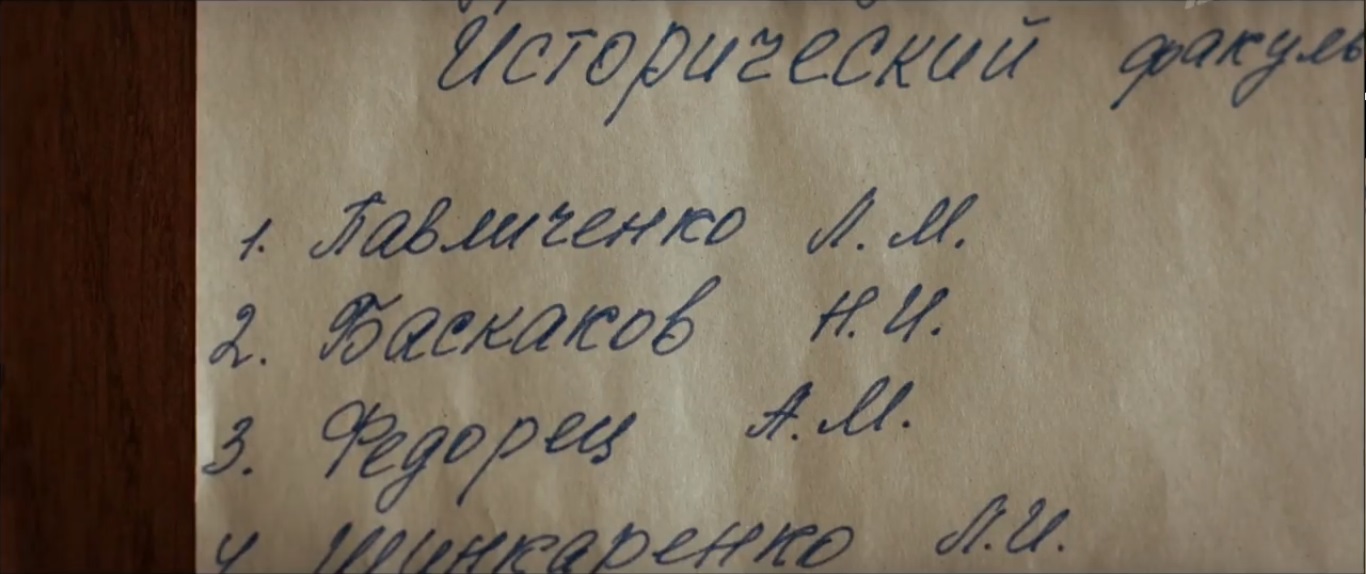 Исторический факуль
1. Павличенко Л. М.
2. Баскаков Н. И.
3. Федорец А. М.
4 Шинкаренко Л. И.